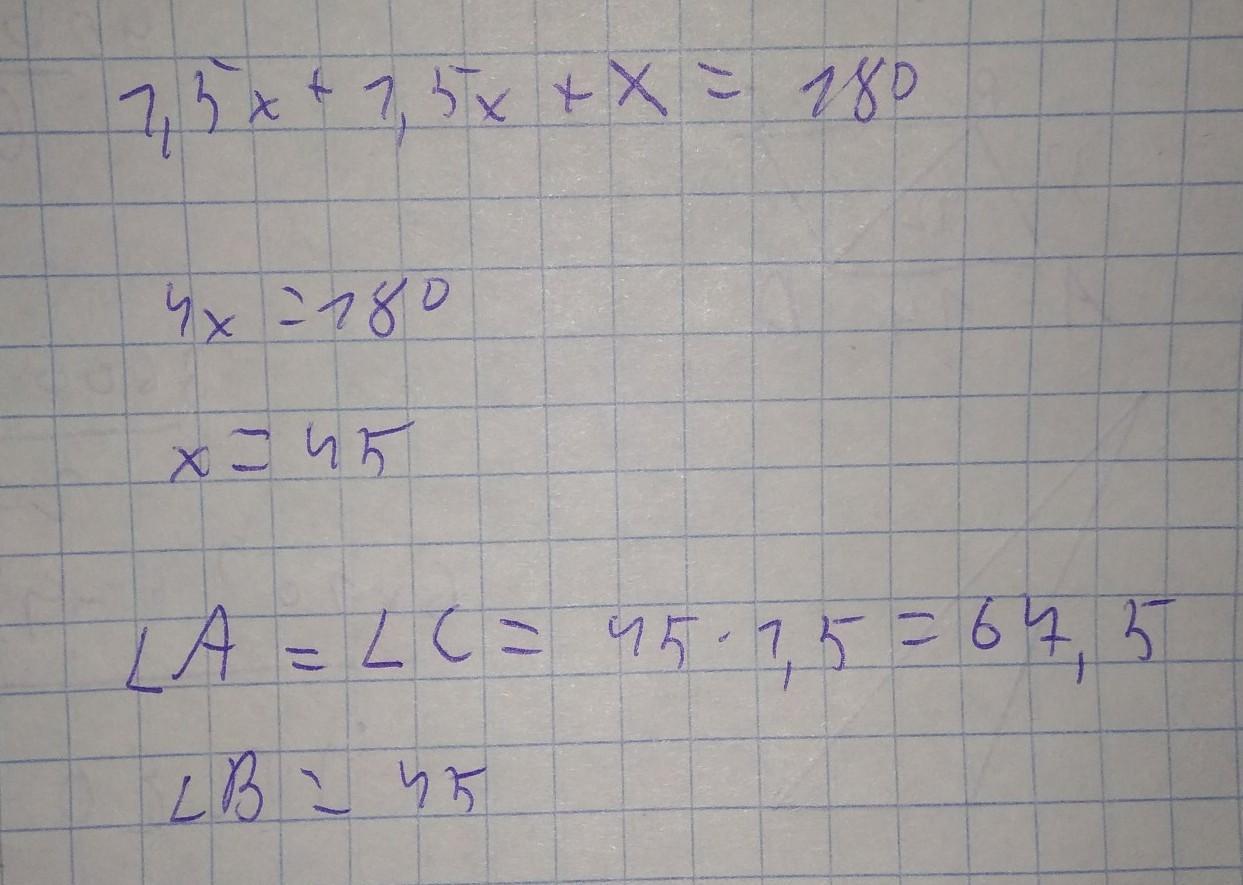 1,5x + 1,5x + x = 180
4x = 180
x = 45
∠A = ∠C = 45 · 1,5 = 67,5
∠B = 45